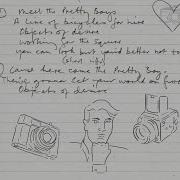 ① Meet the Pretty Boys
A line of bicycles for hire
Objects of desire
Working for the square
you can look but you'd better not to
(shut up)
② Cause here come the Pretty Boy.
There's gonna set your world on fire
Objects of desire